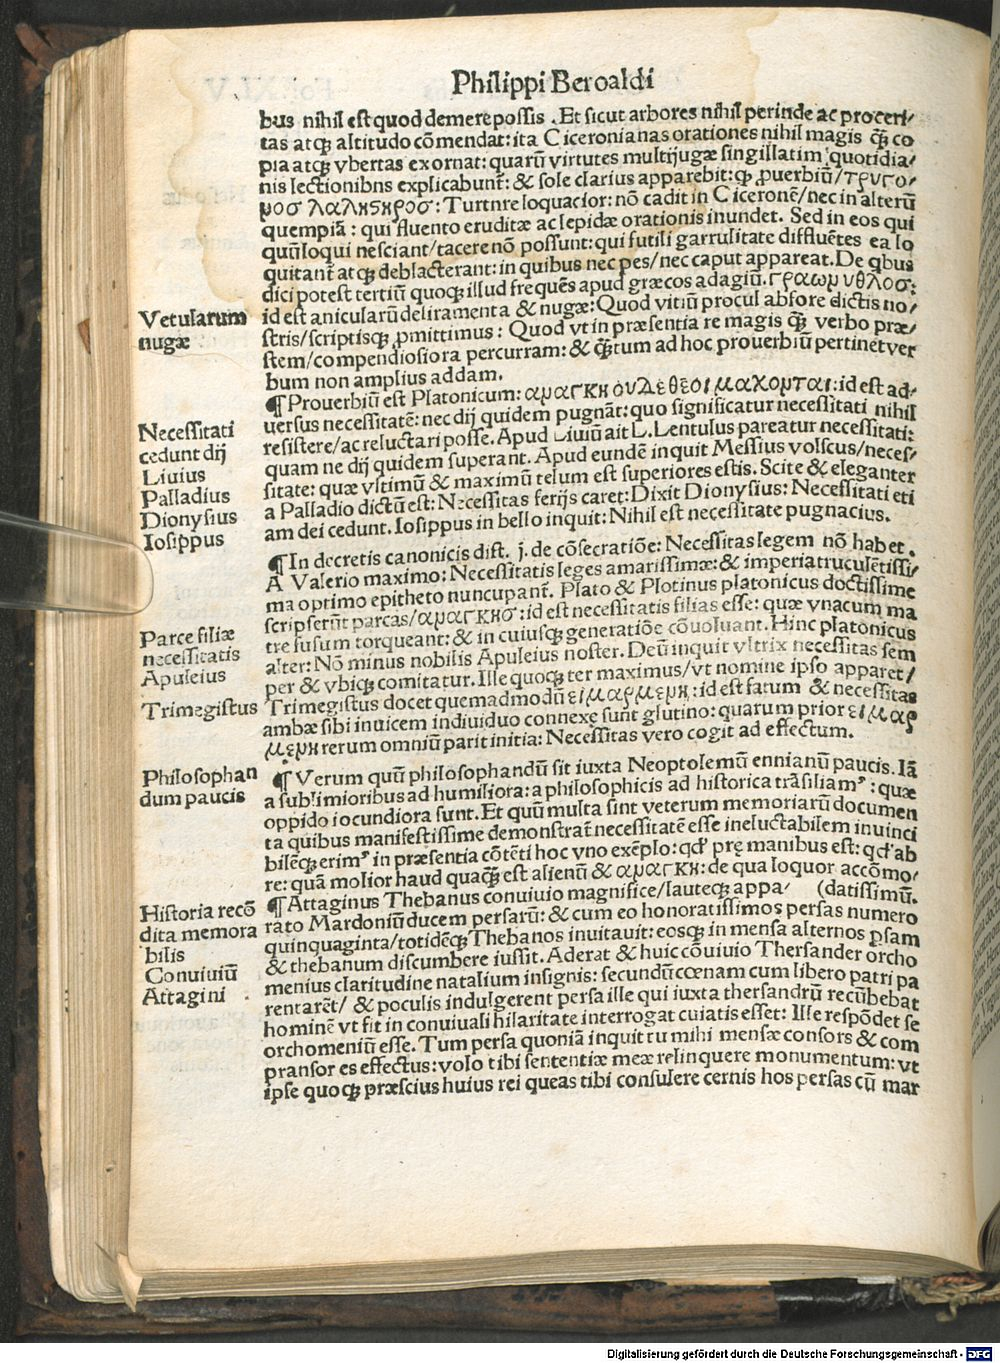 Philippi Beroaldi
bus nihil est quod demere possis . Et sicut arbores nihil perinde ac proceri/
tas atqꝫ altitudo cōmendat: ita Ciceronianas orationes nihil magis q̄ꝫ co
pia atqꝫ vbertas exornat: quarū virtutes multijugæ singillatim quotidia/
nis lectionibns explicabunt̄: & sole clarius apparebit: qꝫ ꝓuerbiū/τρυγο/
μοσ λαλιϛηροσ: Turtnre loquacior: nō cadit in Ciceronē/nec in alterū
quempiā: qui fluento eruditæ ac lepidæ orationis inundet. Sed in eos qui
quū loqui nesciant/tacere nō possunt: qui futili garrulitate difflūetes ea lo
quitant̄ atqꝫ deblacterant: in quibus nec pes/nec caput appareat. De qbus
dici potest tertiū quoqꝫ illud frequēs apud græcos adagiū. γραωμυθλοσ:
Vetularum
nugæ
id est anicularū deliramenta & nugæ: Quod vitiū procul abfore dictis no/
stris/scriptisqꝫ ꝓmittimus: Quod vt in præsentia re magis q̄ꝫ verbo præ/
stem/compendiosiora percurram: & q̄ꝫtum ad hoc prouerbiū pertinet ver
bum non amplius addam.
¶ Prouerbiū est Platonicum: αμαγκη ουδε θεοι μαχομται: id est ad/
uersus necessitatē: nec dij quidem pugnāt: quo significatur necessitati nihil
Necessitati
cedunt dij
Liuius
Palladius
Dionysius
Iosippus
resistere/ac reluctari posse. Apud Liuiū ait L. Lentulus pareatur necessitati:
quam ne dij quidem superant. Apud eundē inquit Messius volscus/neces/
sitate: quæ vltimū & maximū telum est superiores estis. Scite & eleganter
a Palladio dictū est: Necessitas ferijs caret: Dixit Dionysius: Necessitati eti
am dei cedunt. Iosippus in bello inquit: Nihil est necessitate pugnacius.
¶ In decretis canonicis dist. j. de cōsecratiōe: Necessitas legem nō habet.
A Valerio maximo: Necessitatis leges amarissimæ: & imperia truculētissi/
ma optimo epitheto nuncupant̄. Plato & Plotinus platonicus doctissime
scripserūt parcas/αμαγκησ: id est necessitatis filias esse: quæ vnacum ma
Parce filiæ
necessitatis
Apuleius
Trimegistus
tre fusum torqueant: & in cuiusqꝫ generatiōe cōuoluant. Hinc platonicus
alter: Nō minus nobilis Apuleius noster. Deū inquit vltrix necessitas sem
per & vbiqꝫ comitatur. Ille quoqꝫ ter maximus/vt nomine ipso apparet/
Trimegistus docet quemadmodū ειμαρμεμη: id est fatum & necessitas
ambæ sibi inuicem indiuiduo connexę sunt glutino: quarum prior ειμαρ
μεμη rerum omniū parit initia: Necessitas vero cogit ad effectum.
Philosophan
dum paucis
¶ Verum quū philosophandū sit iuxta Neoptolemū ennianū paucis. Iā
a sublimioribus ad humiliora: a philosophicis ad historica trāsiliamꝰ: quæ
oppido iocundiora sunt. Et quū multa sint veterum memoriarū documen
ta quibus manifestissime demonstrat̄ necessitatē esse ineluctabilem inuinci
bilēqꝫ erimꝰ in præsentia cōtēti hoc vno exēplo: qd' prę manibus est: qd' ab
re: quā molior haud quaqꝫ̄ est alienū & αμαγκη: de qua loquor accōmo/
(datissimū.
Historia recō
dita memora
bilis
Conuiuiū
Attagini
¶ Attaginus Thebanus conuiuio magnifice/lauteqꝫ appa/
rato Mardoniū ducem persarū: & cum eo honoratissimos persas numero
quinquaginta/totidēqꝫ Thebanos inuitauit: eosqꝫ in mensa alternos ꝑsam
& thebanum discumbere iussit. Aderat & huic cōuiuio Thersander orcho
menius claritudine natalium insignis: secundū cœnam cum libero patri pa
rentarēt/ & poculis indulgerent persa ille qui iuxta thersandrū recūbebat
hominē vt fit in conuiuali hilaritate interrogat cuiatis esset: Ille respōdet se
orchomeniū esse. Tum persa quoniā inquit tu mihi mensæ consors & com
pransor es effectus: volo tibi sententiæ meæ relinquere monumentum: vt
ipse quoqꝫ præscius huius rei queas tibi consulere cernis hos persas cū mar
Digitalisierung gefördert durch die Deutsche Forschungsgemeinschaft - DFG